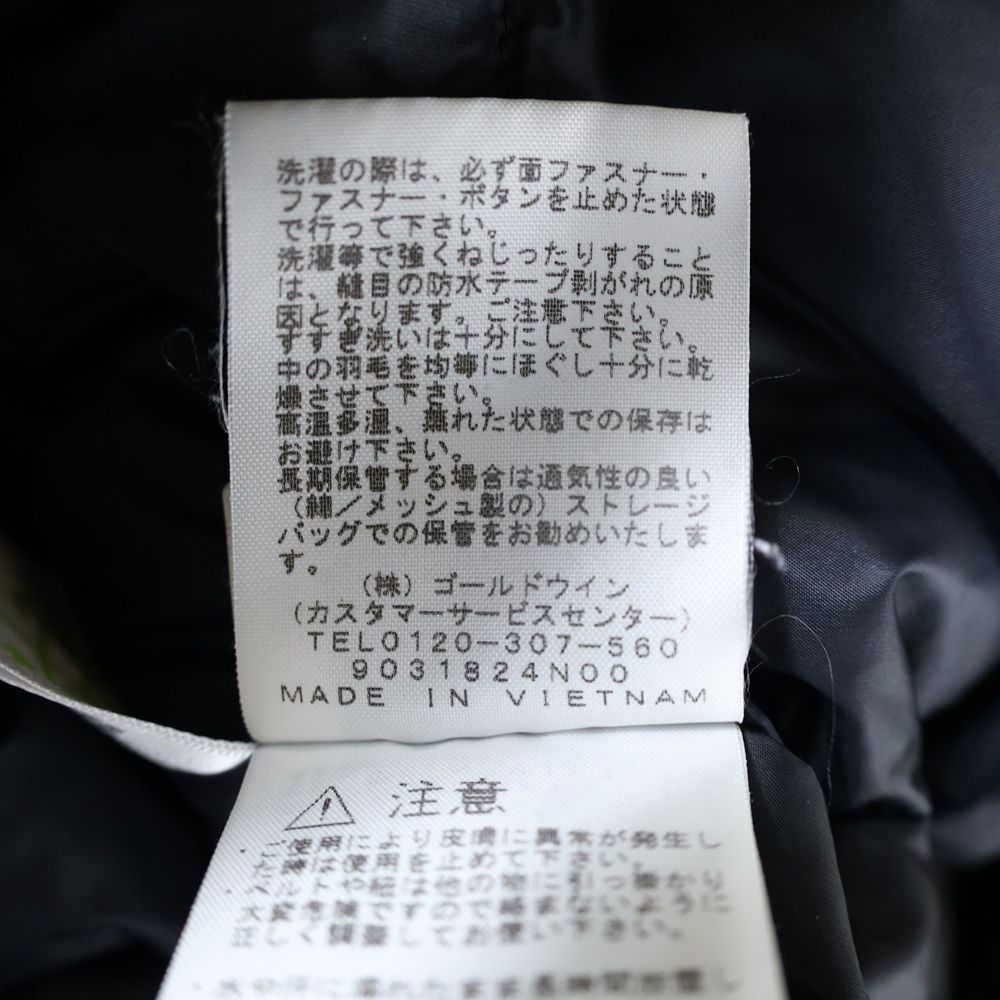 洗濯の際は、必ず面ファスナー・
ファスナー・ボタンを止めた状態
で行って下さい。
洗濯等で強くねじったりすること
は、縫目の防水テープ剥がれの原
因となります。ご注意下さい。
すすぎ洗いは十分にして下さい。
中の羽毛を均等にほぐし十分に乾
燥させて下さい。
高温多湿、蒸れた状態での保存は
お避け下さい。
長期保管する場合は通気性の良い
（綿／メッシュ製の）ストレージ
バッグでの保管をお勧めいたしま
す。
（株）ゴールドウイン
（カスタマーサービスセンター）
TEL0120-307-560
9031824N00
MADE IN VIETNAM
注意
・ご使用により皮膚に異常が発生し
た時は使用を止めて下さい。
・ベルトや紐は他の物に引っ掛かり
大変危険ですので絡まないように
正しく調整してお使い下さい。